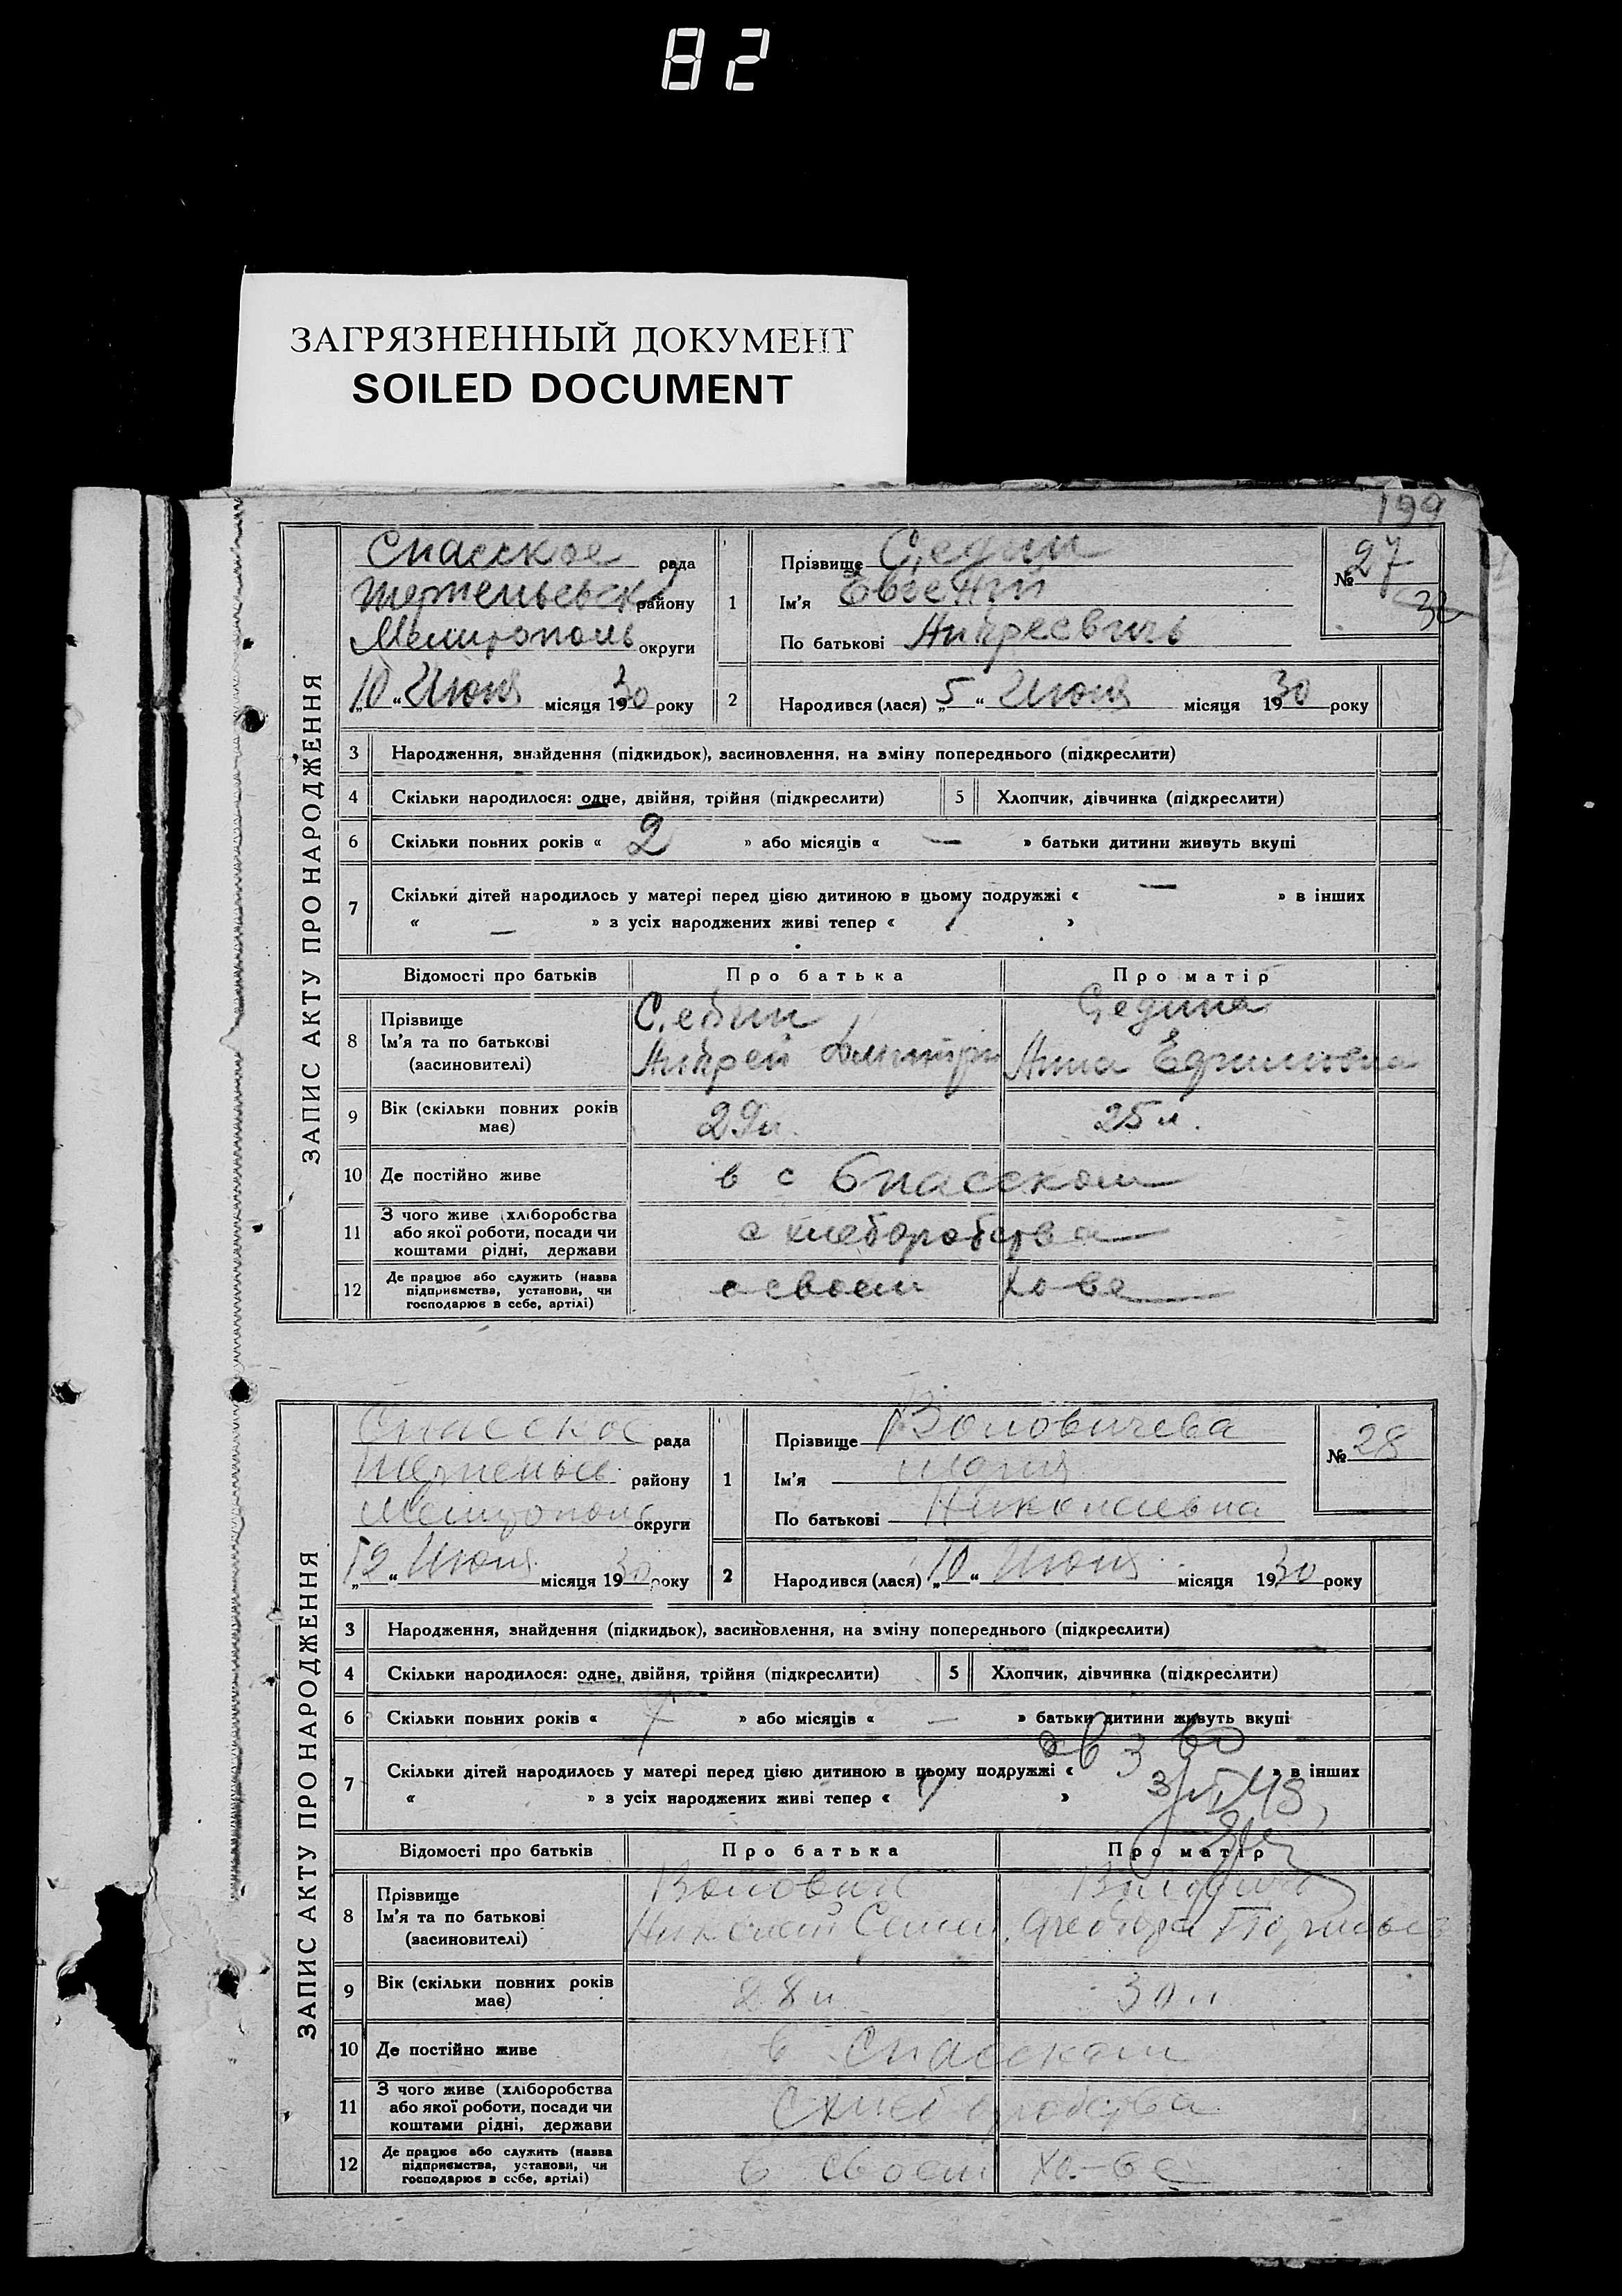 82
ЗАГРЯЗНЕННЫЙ ДОКУМЕНТ
SOILED DOCUMENT
199
ЗАПИС АКТУ ПРО НАРОДЖЕННЯ
Спасское рада
району
Мелитополь округи
„10“ Июня місяця 1930 року
1
Прізвище Седин
Ім'я Евгений
По батькові Андреевичь
№ 27
2 Народився (лася) „5“ Июня місяця 1930 року
3 Народження, знайдення (підкидьок), засиновлення, на зміну попереднього (підкреслити)
4 Скільки народилося: одне, двійня, трійня (підкреслити) 5 Хлопчик, дівчинка (підкреслити)
6 Скільки повних років « 2 » або місяців « — » батьки дитини живуть вкупі
7 Скільки дітей народилось у матері перед цією дитиною в цьому подружжі « — » в інших
« — » з усіх народжених живі тепер « 1 »
Відомості про батьків Про батька Про матір
8 Прізвище
Ім'я та по батькові
(засиновителі)
Седин
Андрей Дмитри
Седина
Анна Ефимовна
9 Вік (скільки повних років має) 29 л. 25 л.
10 Де постійно живе в с Спасском
11 З чого живе (хліборобства
або якої роботи, посади чи
коштами рідні, держави
с хлеборобства
12 Де працює або служить (назва
підприємства, установи, чи
господарює в себе, артілі)
в своем хо-ве
ЗАПИС АКТУ ПРО НАРОДЖЕННЯ
Спасское рада
району
Мелитополь округи
„12“ Июня місяця 1930 року
1
Прізвище
Ім'я
По батькові Николаевна
№ 28
2 Народився (лася) „10“ Июня місяця 1930 року
3 Народження, знайдення (підкидьок), засиновлення, на зміну попереднього (підкреслити)
4 Скільки народилося: одне, двійня, трійня (підкреслити) 5 Хлопчик, дівчинка (підкреслити)
6 Скільки повних років « 7 » або місяців « — » батьки дитини живуть вкупі
7 Скільки дітей народилось у матері перед цією дитиною в цьому подружжі « » в інших
« » з усіх народжених живі тепер « »
Відомості про батьків Про батька Про матір
8 Прізвище
Ім'я та по батькові
(засиновителі)
Николай
9 Вік (скільки повних років має) 28 л 30 л
10 Де постійно живе в Спасском
11 З чого живе (хліборобства
або якої роботи, посади чи
коштами рідні, держави
с хлеборобства
12 Де працює або служить (назва
підприємства, установи, чи
господарює в себе, артілі)
в своем хо-ве